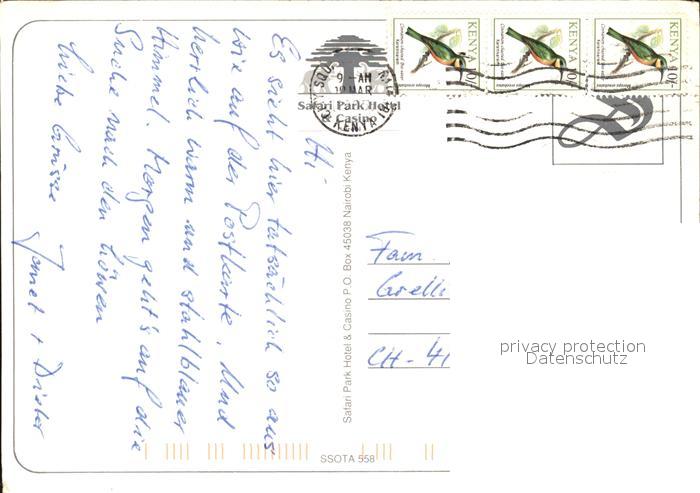 Hi -
Es sieht hier tatsächlich so aus
wie auf der Postkarte. Und
herrlich warm und stahlblauer
Himmel. Morgen geht's auf die
Suche nach den Löwen
Liebe Grüsse
+ Dieter
KENYA 10/-
KENYA 10/-
KENYA 10/-
9 - AM
MAR
KENYA
Safari Park Hotel
& Casino
Safari Park Hotel & Casino P.O. Box 45038 Nairobi Kenya
Fam.
CH - 41
privacy protection
Datenschutz
SSOTA 558